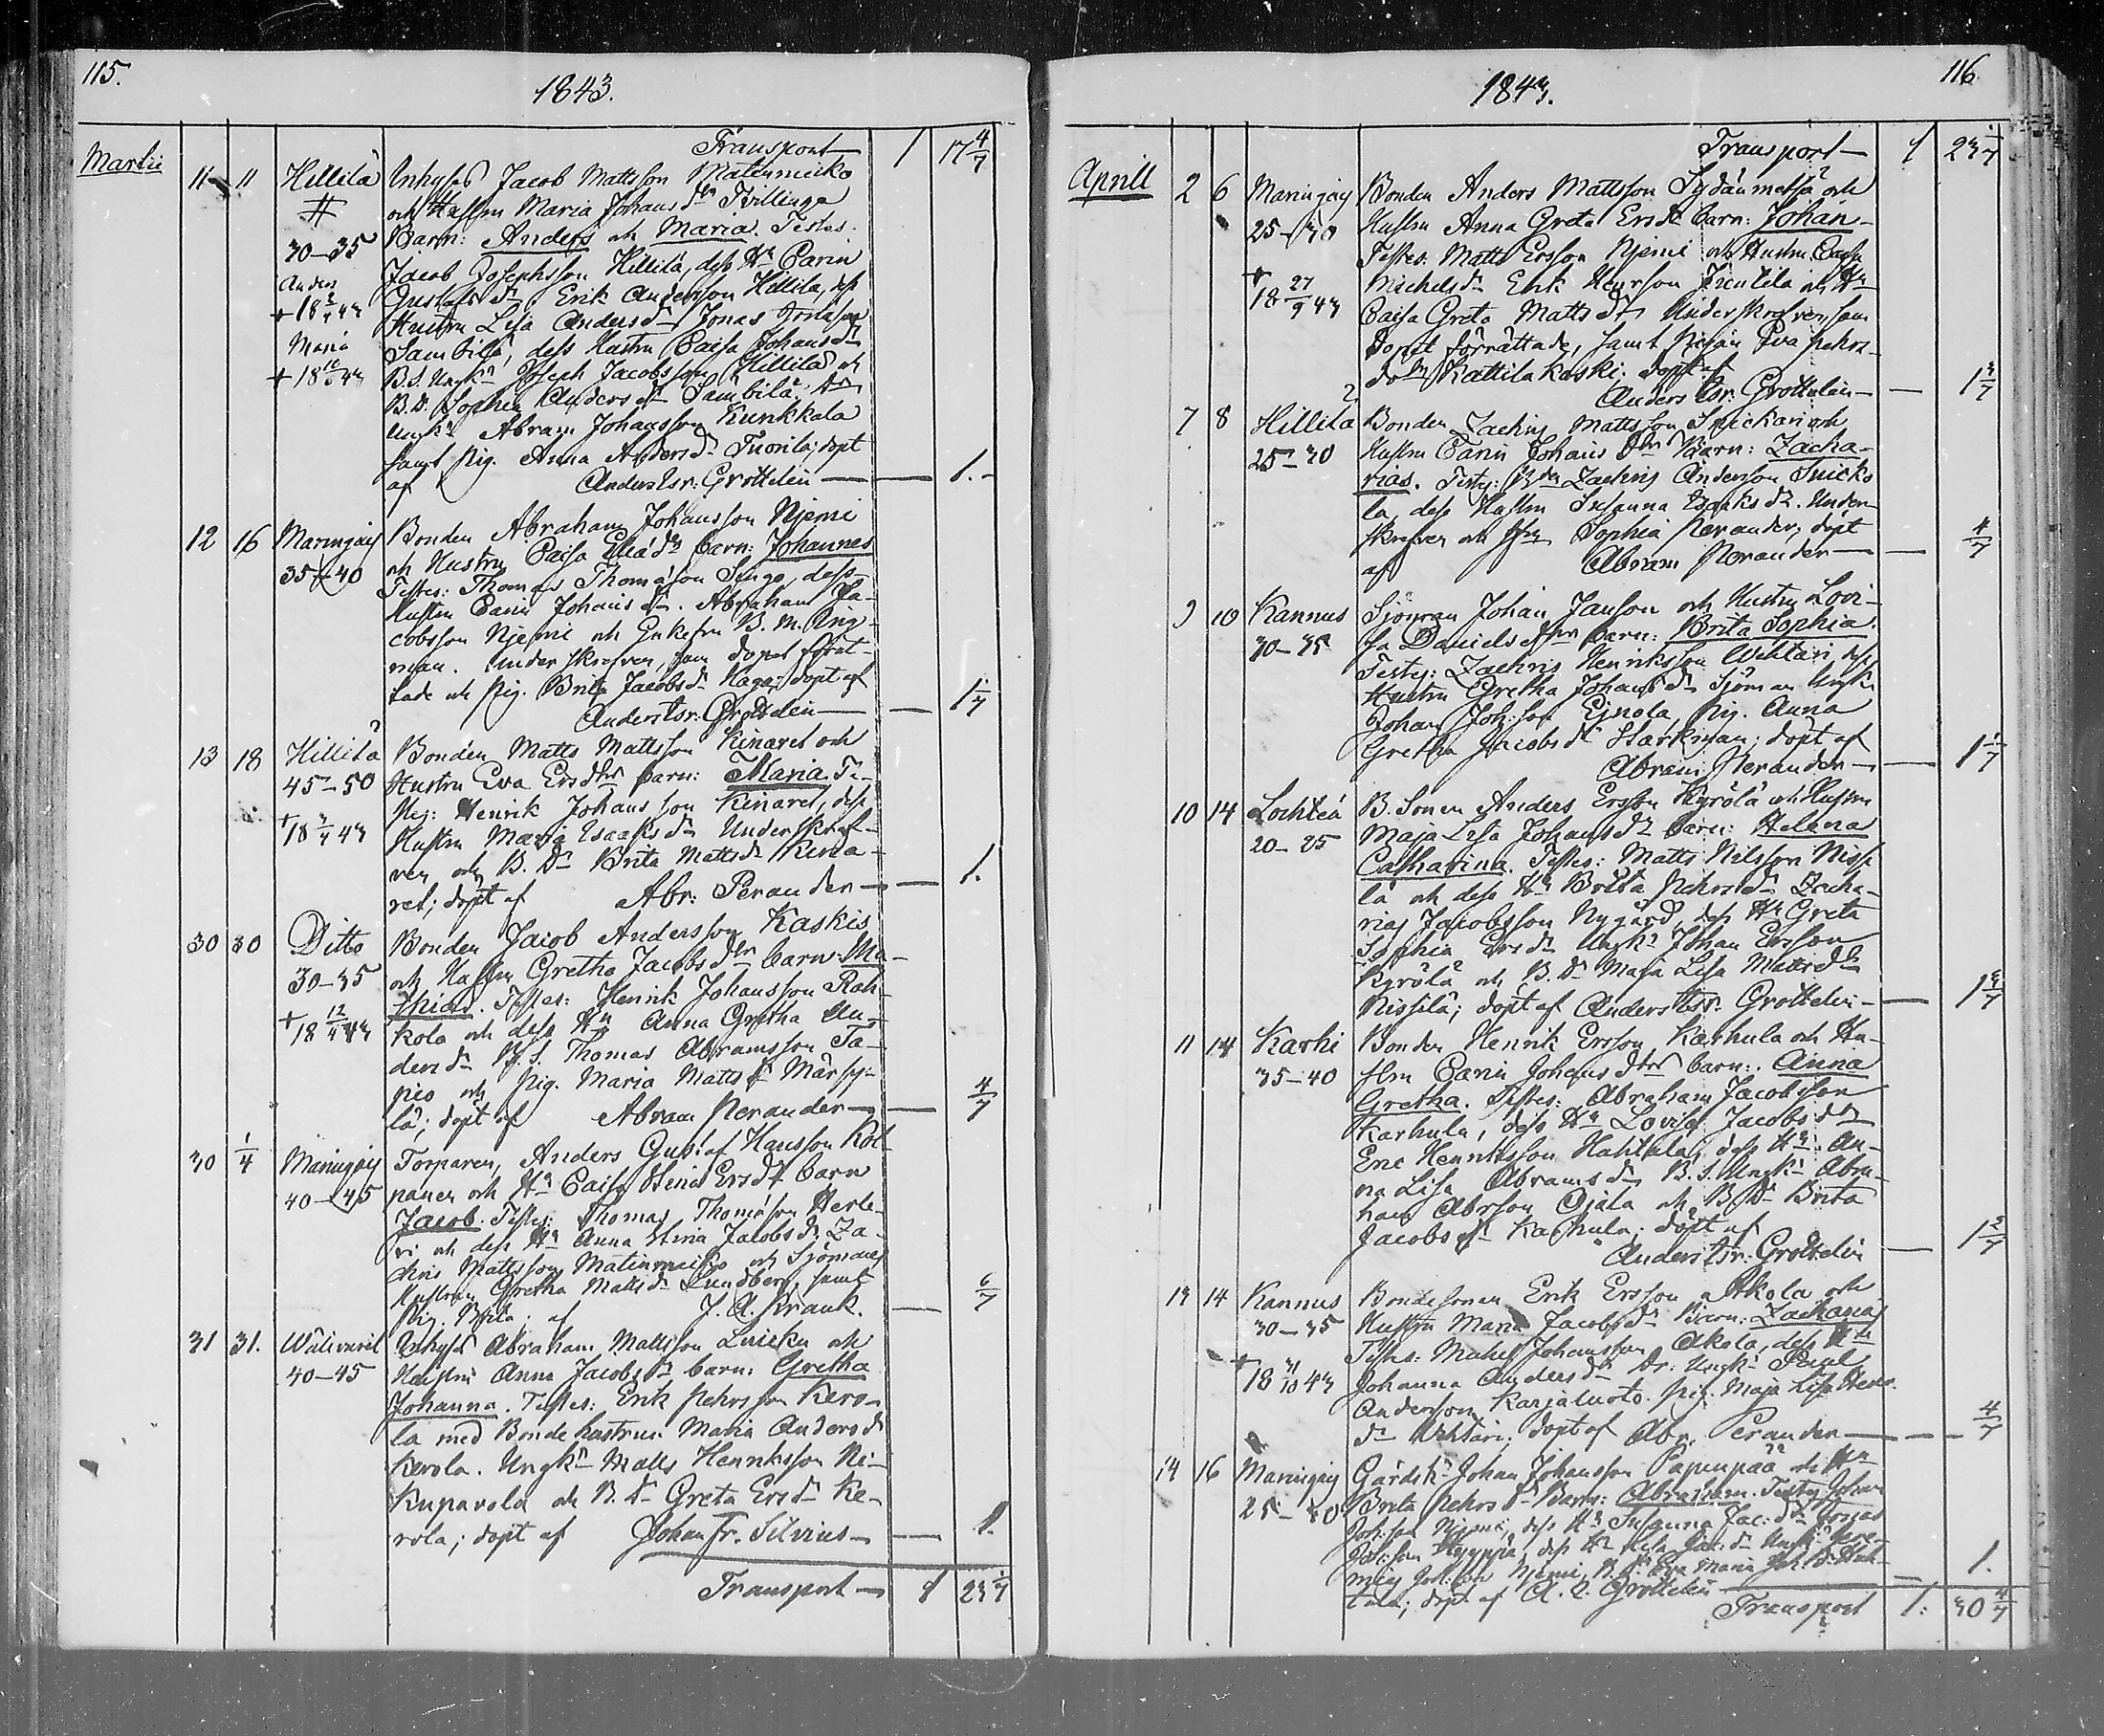 115.
1843.
Transport — 1 17 4/7
Martii 11 11 Hillilä Inhyses Jacob Mattsson Matinmicko
# och Hustru Maria Johansdr Tvillinge
30–35 Barn: Anders och Maria. Testes:
Anders Jacob Josephsson Hillilä, dess Hu Carin
+ 18 43 Gustafsdr, Erik Andersson Hillilä, dess
Maria Hustru Lisa Andersdr Jonas
+ 18 43 Sambilä, dess Hustru Caisa Johansdr
B.S. Ungkn Joseph Jacobsson Hillilä och
B.D. Sophia Andersdr Sambilä. Dr
Ungkn Abram Johansson Kunkkala
samt Pig. Anna Andersdr Tuorila; döpt
af Anders Esr: Grottelin — — 1.–
12 16 Maringais Bonden Abraham Johansson Njemi
35–40 och Hustru Caisa Eliædr barn: Johannes
Testes: Thomas Thomasson Singo, dess
Hustru Carin Johansdr. Abraham Ja-
cobsson Njemi och Enkefru B. M. Ring-
man. Underskrefven, som dopet förrät-
tade och Pig. Brita Jacobsdr Haga; döpt af
Anders Esr: Grottelin — — 1 1/7
13 18 Hillilä Bonden Matts Mattsson Kinaret och
45–50 Hustru Eva Ersdtr barn: Maria. Te-
stes: Henrik Johansson Kinaret, dess
+ 18 3/4 43 Hustru Maria Esaaksdr Underskref-
ven och B. Dr Brita Mattsdr Kina-
ret; döpt af Abr: Perander — — 1.
30 30 Ditto Bonden Jacob Andersson Kaskis
30–35 och Hustru Gretha Jacobsdtr barn: Ma-
thias. Testes: Henrik Johansson Rah-
+ 18 12/4 43 kola och dess Hu Anna Gretha An-
dersdr B.S. Thomas Abramsson Ta-
pio och Pig. Maria Mattsdr Märsy-
lä; döpt af Abram Perander — — 4/7
30 1/4 Maringais Torparen, Anders Gustaf Hansson Kol-
40–45 panen och Hu Caisa Stina Ersdr barn
Jacob. Testes: Thomas Thomasson Herle-
vi och dess Hu Anna Stina Jacobsdr. Za-
chris Mattsson Matinmicko och Sjömans
Hustrun Gretha Mattsdr Lundberg, samt
Pig. Brita; af J. A. Krank. — 6/7
31 31. Wäliveril Inhyses Abraham Mattsson Luicku och
40–45 Hustru Anna Jacobsdr barn: Gretha
Johanna. Testes: Erik Pehrsson Kero-
la med Bondehustrun Maria Andersdr
Kerola. Ungkn Matts Henriksson Ni-
kuparola och B. Dr Greta Ersdr Ke-
rola; döpt af Johan Fr. Silvius — — 1.
Transport — 1 23 1/7
116
1843.
Transport — 1 23 1/7
Aprill 2 6 Maringais Bonden Anders Mattsson Sydänmetsä och
25–30 Hustru Anna Greta Ersdr barn: Johan
Testes: Matts Ersson Njemi och Hustru Caisa
+ 18 27/9 43 Michelsdr Erik Henrson och Hu
Caisa Greta Mattsdr Underskrefven, som
dopet förrättade, samt Pigan Eva Pehrs-
dotr Kattilakoski. döpt af
Anders Esr. Grottelin — — 1 3/7
7 8 Hillilä Bonden Zachris Mattsson Snickari och
25–30 Hustru Carin Johansdtr Barn: Zacha-
rias. Testes: Bdn Zachris Andersson Snicko
la, dess Hustru Susanna Esaaksdr. Under-
skrefven och Sophia Perander; döpt
af Abram Perander — — 4/7
9 10 Kannus Sjöman Johan Janson och Hustru Lovi-
30–35 sa Danielsdtr barn: Brita Sophia.
Testes: Zachris Henriksson Wihtari, dess
Hustru Gretha Johansdr Sjöman Ungkn
Johan Joh:son Ejnola, Pig. Anna
Gretha Jacobsdr Starkman; döpt af
Abram Perander — — 1 1/7
10 14 Lochteå B. Sonen Anders Ersson Kyrölä och Hustru
20–25 Maja Lisa Johansdr barn: Helena
Catharina. Testes: Matts Nilsson Nissi
lä och dess Hu Brita Pehrsdr Zacha-
rias Jacobsson Nygård, dess Hu Greta
Sophia Ersdr Ungkn Johan Ersson
Kyrölä och B. Dr Maja Lisa Mattsdr
Nissilä; döpt af Anders Esr. Grottelin — 1 3/7
11 14 Karhi Bonden Henrik Ersson Karhula och Hu-
35–40 stru Carin Johansdtr barn: Anna
Gretha. Testes: Abraham Jacobsson
Karhula, dess Hu Lovisa Jacobsdr
Eric Henriksson Hahtala, dess Hu An-
na Lisa Abramsdr B.S. Ungkn Abra-
ham Abrson Ojala och B. Dr Brita
Jacobsdr Karhula; döpt af
Anders Esr. Grottelin — 1 2/7
13 14 Kannus Bondesonen Erik Ersson Akola och
30–35 Hustru Maria Jacobsdr Barn: Zacharias
Testes: Mathes Johansson Akola, dess Hu
+ 18 31/10 43 Johanna Andersdr Dr. Ungkn Paul
Andersson Karjaluoto. Pig. Maja Lisa
dr Wihtari; döpt af Abr. Perander — — 4/7
14 16 Maringais Gårdsk. Johan Johansson Papinpää och Hu
25–30 Brita Pehrsdr Barn: Abraham. Testes Johan
Joh:son Njemi, dess Hu Susanna Jac:dr Jonas
Joh:son dess Hu Lisa Jac:dr Ungkn Jere-
mias Joh:son Njemi, B. Dr Eva Maria Joh:dr Hah-
tala; döpt af A. E. Grottelin — 1.
Transport 1. 30 4/7